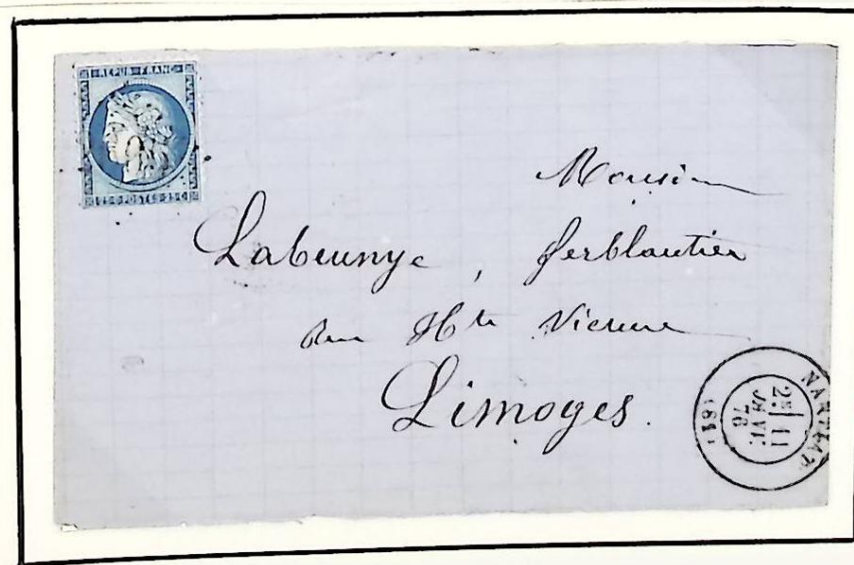 REPUB·FRANC
25·C·POSTES·25·C
Monsieur
Labeunye, ferblantier
rue Hte Vienne
Limoges.
2E 11
JANV.
76